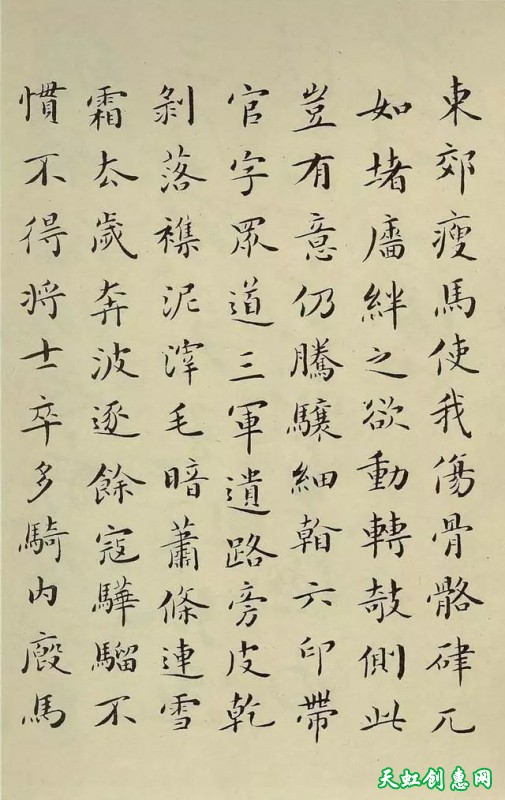 東郊瘦馬使我傷骨骼硉兀
如堵廧絆之欲動轉攲側此
豈有意仍騰驤細看六印帶
官字眾道三軍遺路旁皮乾
剝落襍泥滓毛暗蕭條連雪
霜去歲奔波逐餘寇驊騮不
慣不得將士卒多騎內廄馬
天虹创意网